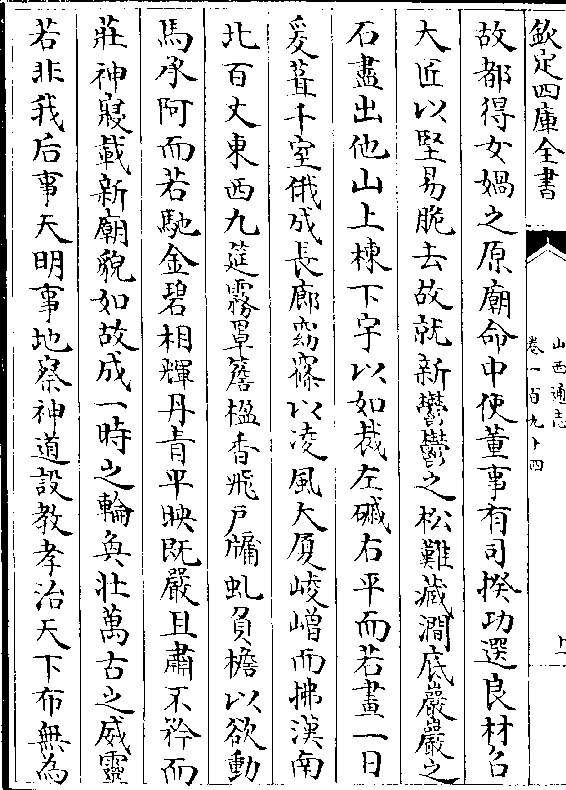 欽定四庫全書
山西通志
卷一百九十四
故都得女媧之原廟命中使董事有司揆功選良材召
大匠以堅易脆去故就新鬱鬱之松難藏澗底巖巖之
石盡出他山上棟下宇以如裁左磩右平而若畫一日
爰葺千室俄成長廊窈窱以凌風大厦崚嶒而拂漢南
北百丈東西九筵霧罩簷楹香飛戶牖虬負檐以欲動
馬承阿而若馳金碧相輝丹青平映既嚴且肅不矜而
莊神寢載新廟貌如故成一時之輪奐壯萬古之威靈
若非我后事天明事地察神道設教孝治天下布無為